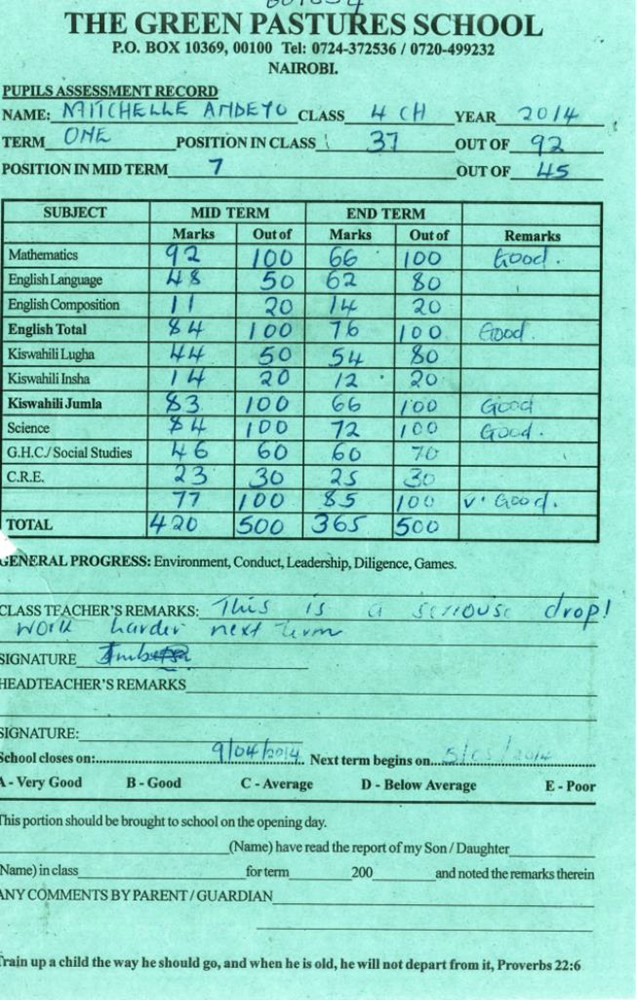 THE GREEN PASTURES SCHOOL
P.O. BOX 10369, 00100 Tel: 0724-372536 / 0720-499232
NAIROBI.
PUPILS ASSESSMENT RECORD
NAME: MITCHELLE AMDEYO CLASS 4 CH YEAR 2014
TERM ONE POSITION IN CLASS 37 OUT OF 92
POSITION IN MID TERM 7 OUT OF 45
SUBJECT MID TERM END TERM
Marks Out of Marks Out of Remarks
Mathematics 92 100 66 100 Good.
English Language 48 50 62 80
English Composition 11 20 14 20
English Total 84 100 76 100 Good.
Kiswahili Lugha 44 50 54 80
Kiswahili Insha 14 20 12 20
Kiswahili Jumla 83 100 66 100 Good
Science 84 100 72 100 Good.
G.H.C./Social Studies 46 60 60 70
C.R.E. 23 30 25 30
77 100 85 100 v. Good.
TOTAL 420 500 365 500
GENERAL PROGRESS: Environment, Conduct, Leadership, Diligence, Games.
CLASS TEACHER'S REMARKS: This is a seriouse drop!
Work harder next term
SIGNATURE
HEADTEACHER'S REMARKS
SIGNATURE:
School closes on: 9/04/2014 Next term begins on 5/05/2014
A - Very Good B - Good C - Average D - Below Average E - Poor
This portion should be brought to school on the opening day.
(Name) have read the report of my Son / Daughter
Name) in class for term 200 and noted the remarks therein
ANY COMMENTS BY PARENT / GUARDIAN
Train up a child the way he should go, and when he is old, he will not depart from it, Proverbs 22:6